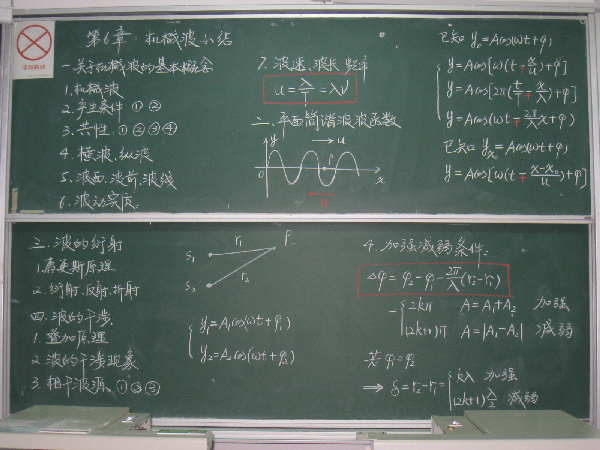 第6章:机械波小结
一.关于机械波的基本概念
1.机械波
2.产生条件 ①②
3.共性:①②③④
4.横波、纵波
5.波面、波前、波线
6.波动实质.
7.波速、波长、频率
u = λ/T = λν
二、平面简谐波波函数
y
→ u
0
P
x
x/u
已知 y₀=Acos(ωt+φ)
y=Acos[ω(t∓x/u)+φ]
y=Acos[2π(t/T∓x/λ)+φ]
y=Acos(ωt∓2π/λ x+φ)
已知 yx₀=Acos(ωt+φ)
y=Acos[ω(t∓(x-x₀)/u)+φ]
三.波的衍射
1.惠更斯原理
2.衍射、反射、折射
四.波的干涉.
1.叠加原理
2.波的干涉现象
3.相干波源.①②③
S₁
r₁
P
S₂
r₂
y₁=A₁cos(ωt+φ₁)
y₂=A₂cos(ωt+φ₂)
4.加强减弱条件.
Δφ=φ₂-φ₁-2π/λ(r₂-r₁)
=2kπ A=A₁+A₂ 加强
(2k+1)π A=|A₁-A₂| 减弱
若 φ₁=φ₂
⇒ δ=r₂-r₁= kλ 加强
(2k+1)λ/2 减弱